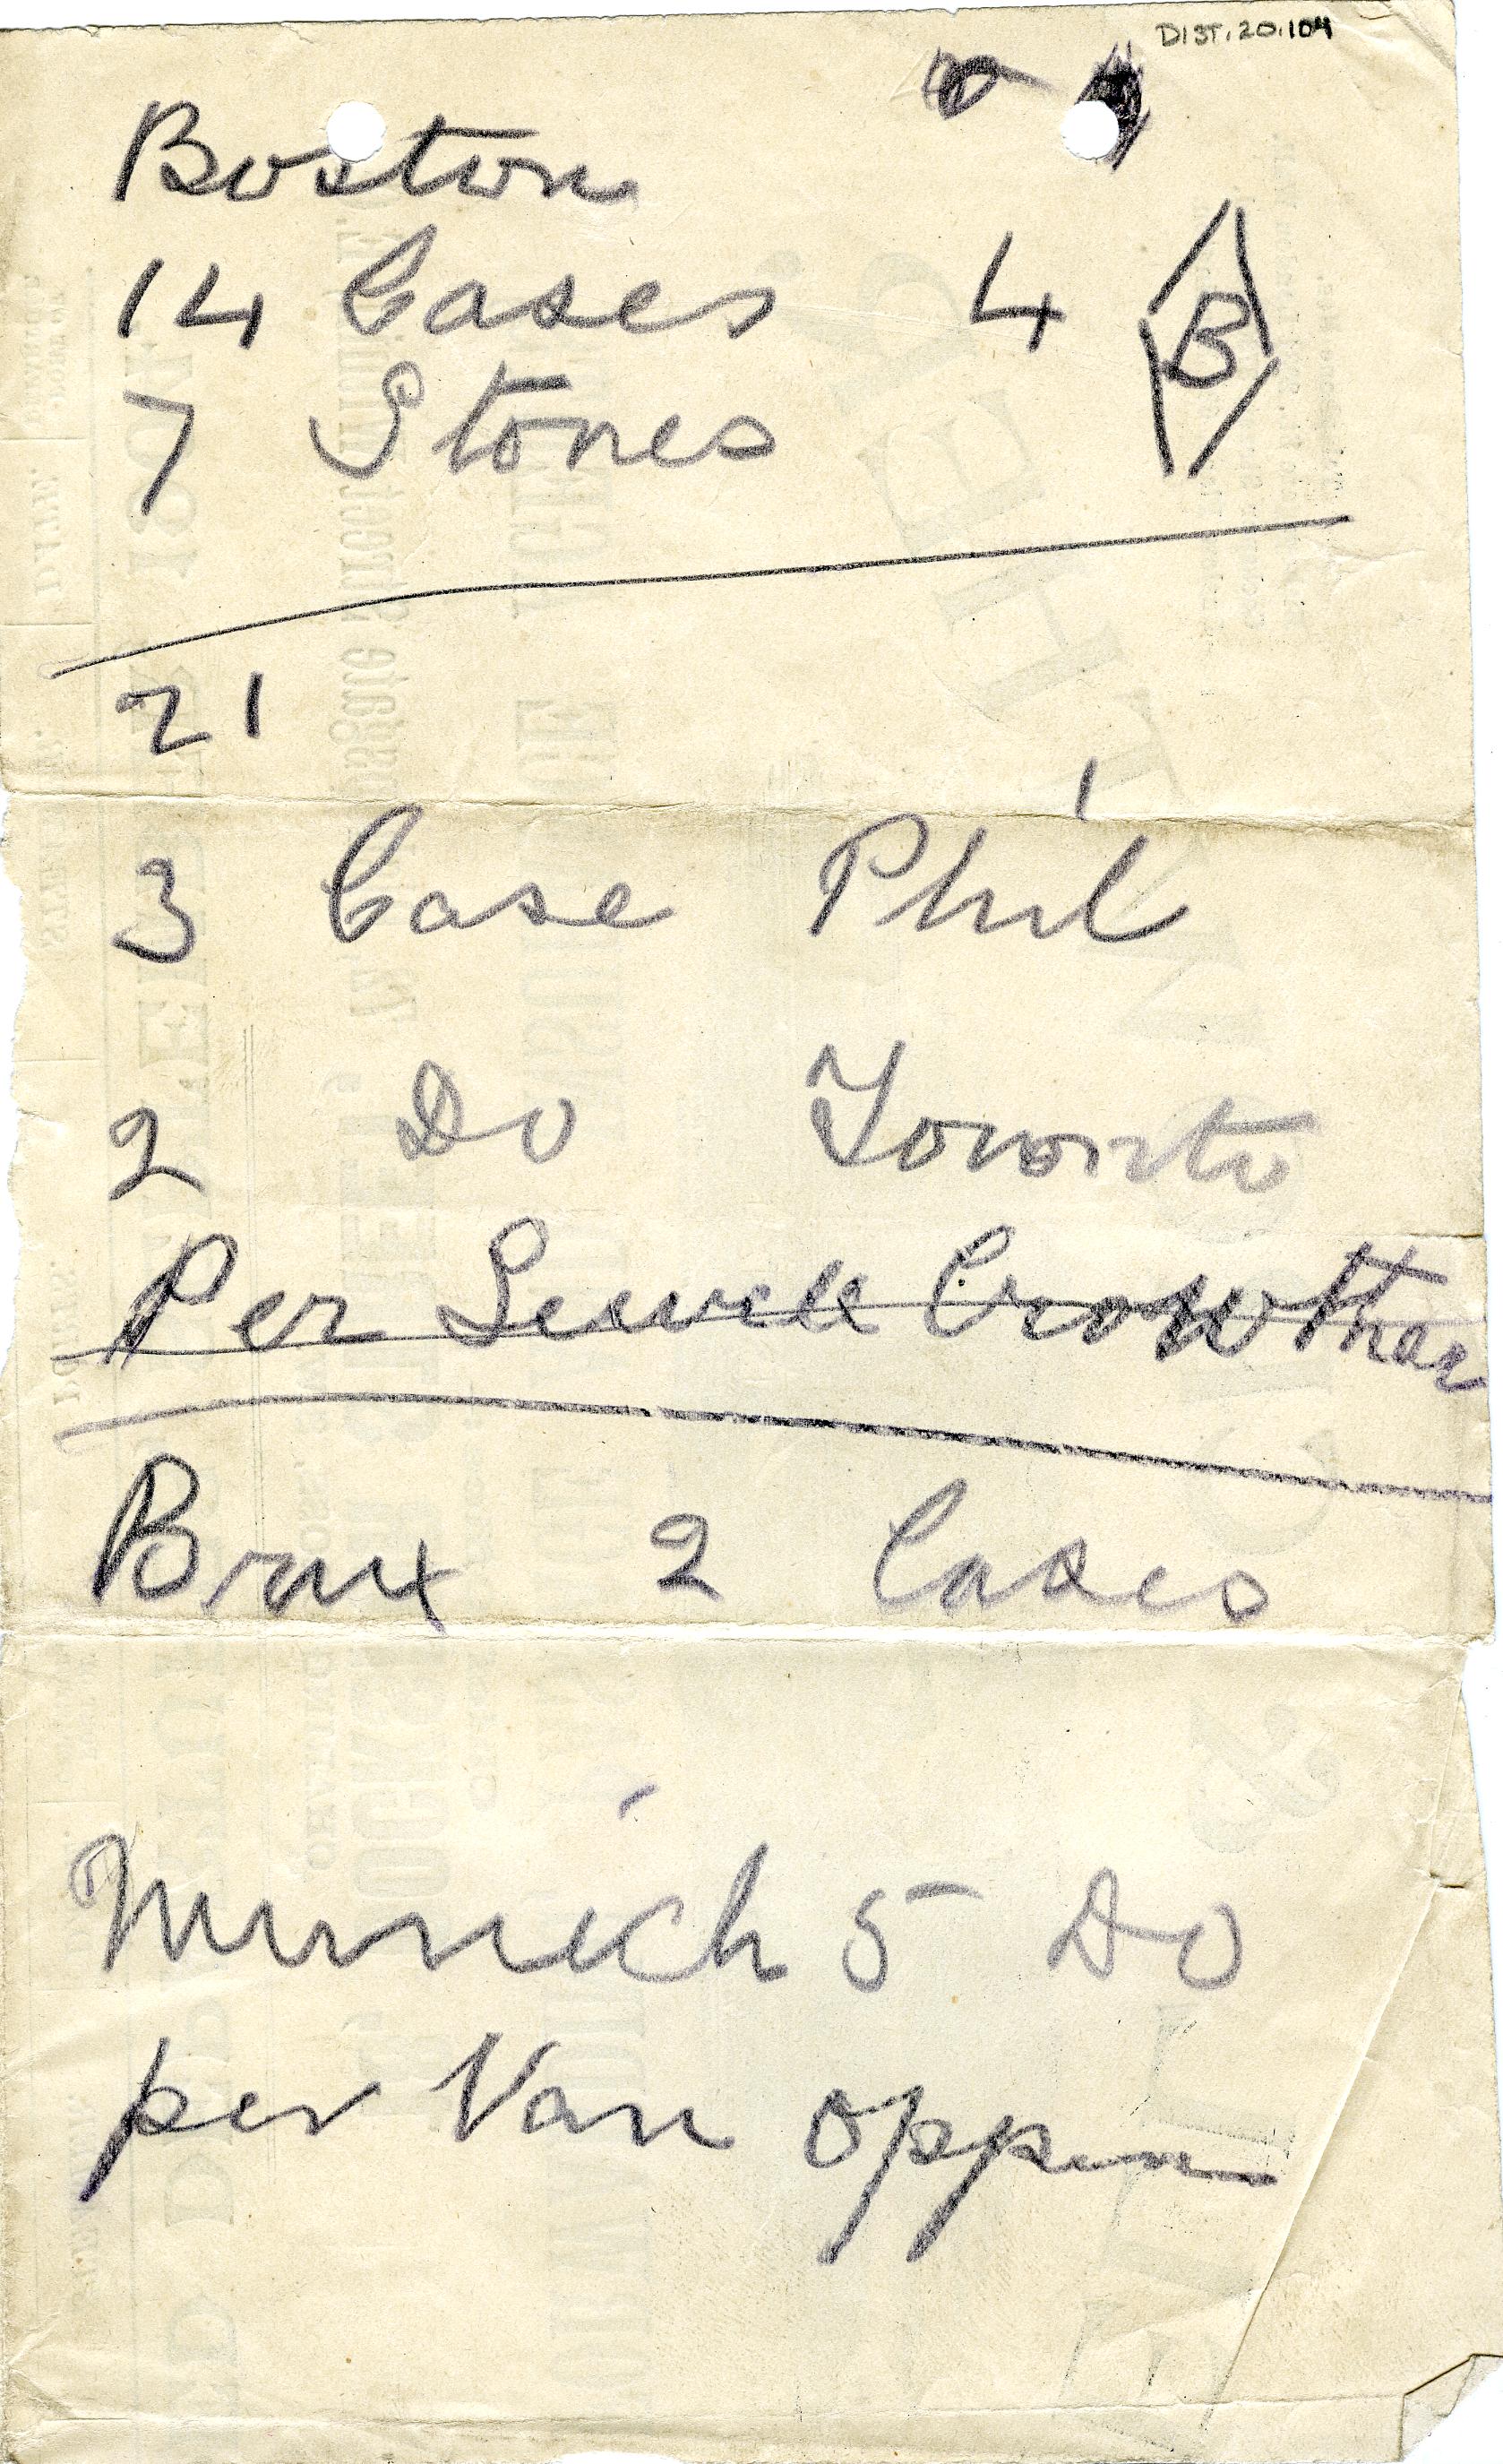 DIST.20.104
Boston
14 Cases 4 B
7 Stones
21
3 Case Phil
2 Do Toronto
Per Crowther
Brux 2 Cases
Munich 5 Do
per Van Oppen